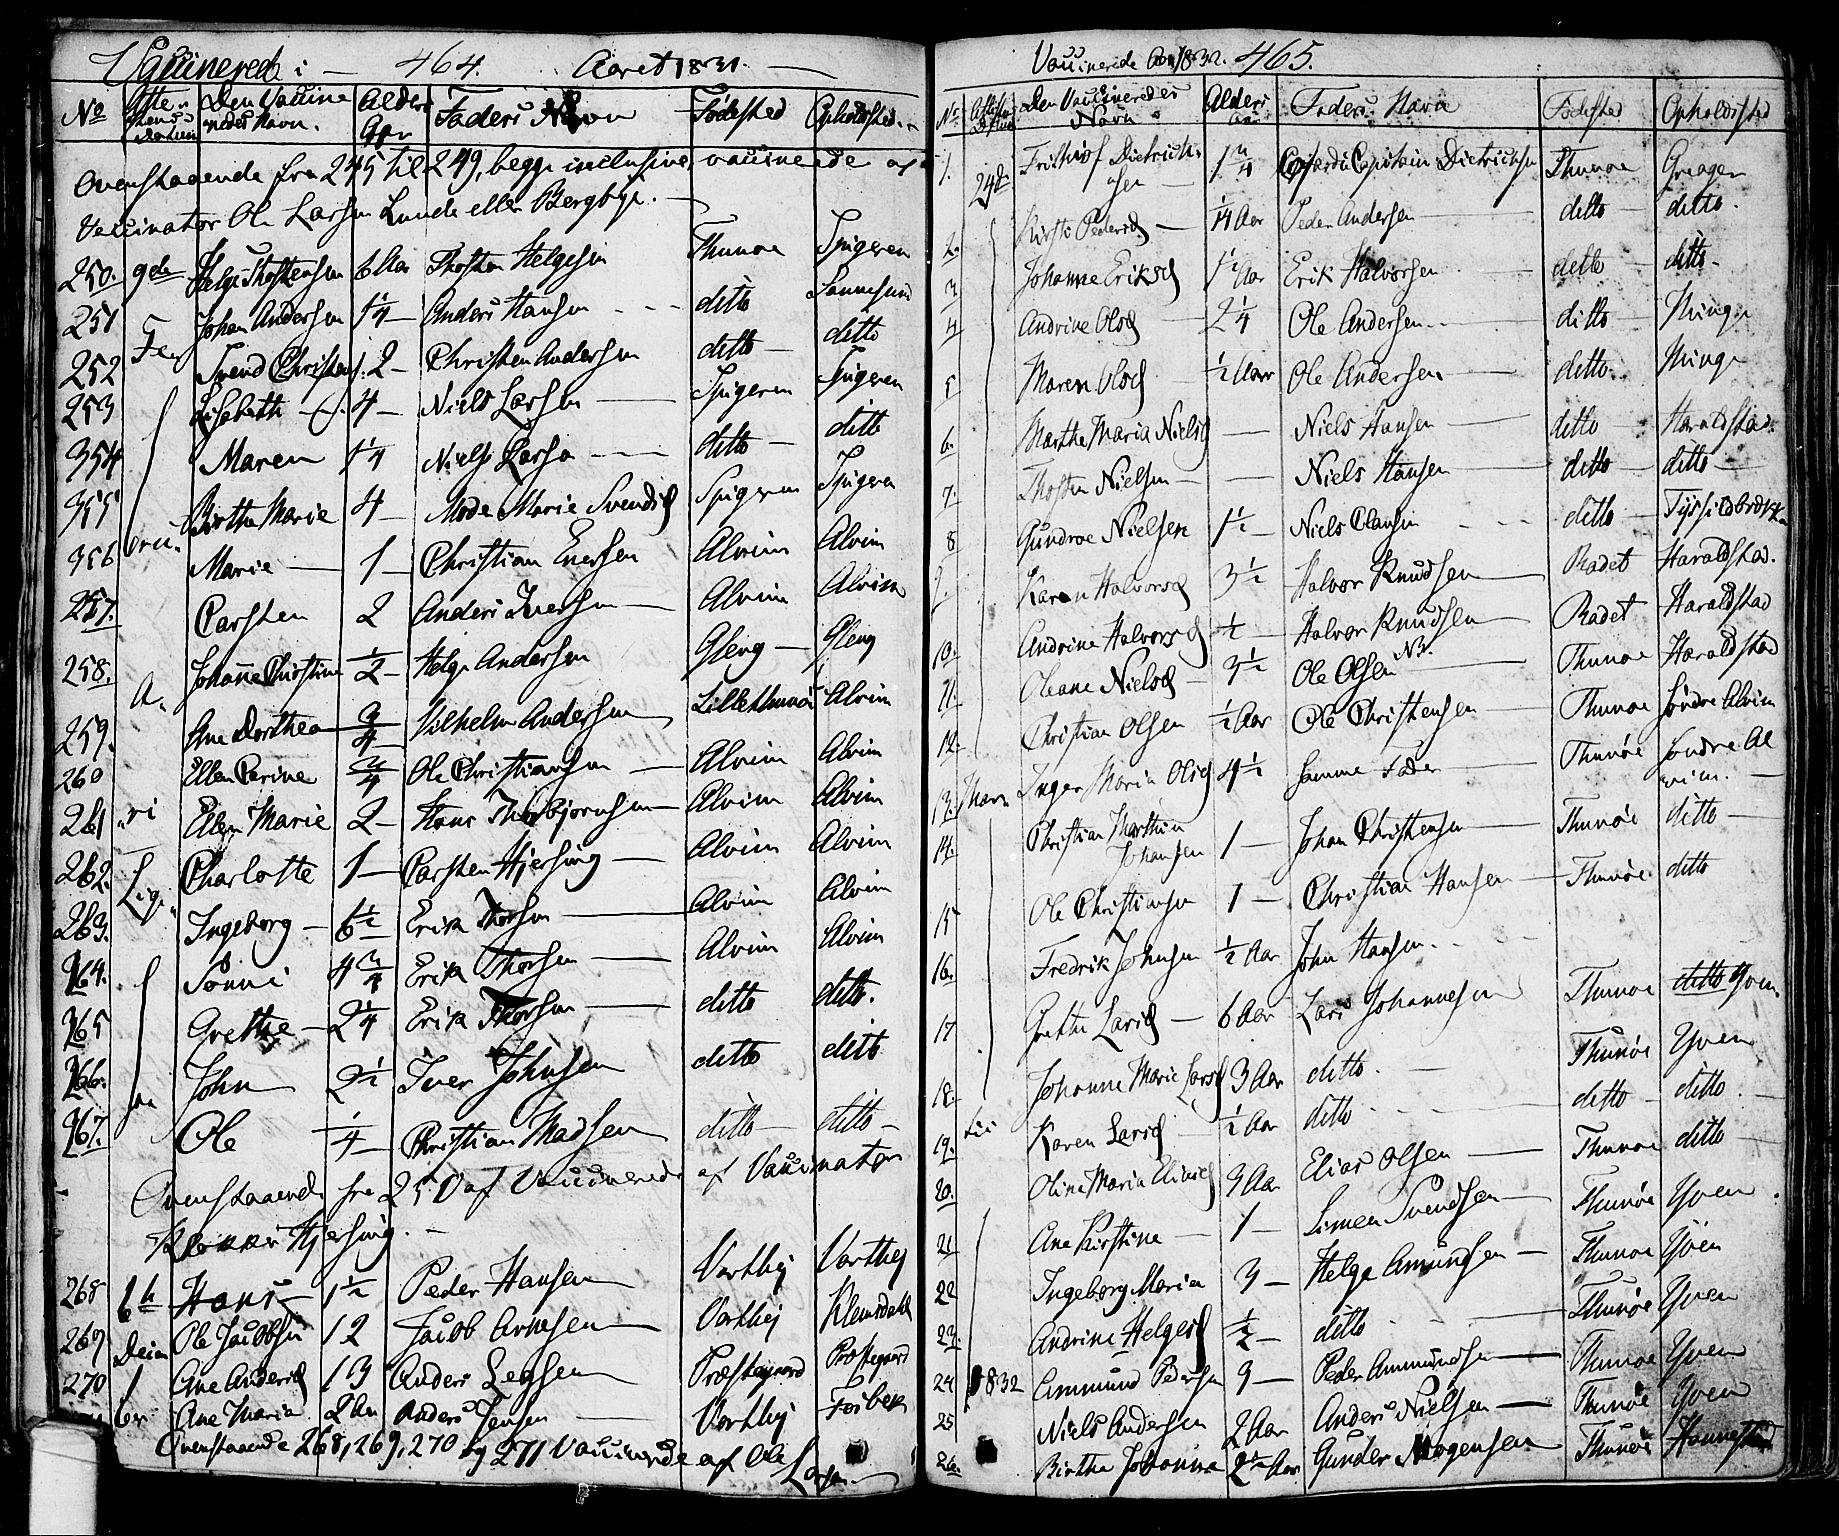 Vaccinerede i — 464. Aaret 1831. —
No Atte-stens Datum Den Vaccine-redes Navn. Alder Aar Faders Navn Fødested Opholdssted.
Ovenstaaende fra 245 til 249, begge inclusive, vaccinerede af
Vaccinator Ole Larsen Lunde eller Bergbye. —
250. 9de Helge Thostensen 6 Aar Thosten Helgesen Thunøe Spigeren
251 Johan Andersen 1 1/4 — Anders Hansen ditto Sannesund
252 Svend Christens. 2 — Christen Andersen ditto — ditto
253 Lisabeth 4 — Niels Larsen — Spigeren Spigeren
354 Maren 1 1/4 Niels Larsen — ditto — ditto
355 Birthe Marie 4 — Mode Marie Svendsd Spigeren Spigeren
356 Marie — 1 — Christian Enersen Alvim Alvim
257. Carsten 2 Anders Iversen — Alvim Alvim
258. Johanne Christine 1/2 — Helge Andersen Gleng — Gleng
259. Ane Dorthea 3/4 — Vilhelm Andersen Lille Thunøe Alvim
260 Ellen Perine 3/4 Ole Christiansen — Alvim Alvim
261 Ellen Marie 2 — Hans Thorbjørnsen — Alvim Alvim
262. Charlotte 1 — Carsten Hjersing — Alvim Alvim
263. Ingeborg — 6 1/2 Erik Thorsen — Alvim Alvim
264. Sønni 4 3/4 Erik Thorsen — Alvim Alvim
265 Grethe — 2 1/4 Erik Thorsen — ditto ditto.
266. John 2 1/2 Iver Johnsen ditto ditto
267. Ole 1/4 — Christian Madsen ditto — ditto —
Ovenstaaende fra 250 af Vaccinerede af Vaccinator
Hjersing. —
268 6te Hans — 1 1/2 Peder Hansen Varthej Varthej
269 Decem Ole Jacobsen 12 Jacob Arnesen Varthej Klemsdahl
270 Ane Andersd 13 Anders Præstegaard Præstegaard
ber Ane Maria 2 Aar Anders Jensen — Varthej
Ovenstaaende 268, 269, 270 og 271 Vaccinerede af Ole
Larsen —
Vaccinerede Aar 1832. 465.
No Den Vaccineredes Navn Alders Aar Faders Navn Fødested Opholdssted
1. 24de Frithiof Dietrich-sen — 1 3/4 Capitain Dietrichsen Thunøe Greager
2. Kirsti Pedersd — 1/4 Aar Peder Andersen — ditto — ditto.
3 Johanne Eriksd 1 1/2 Aar Erik Halvorsen ditto ditto —
4 Andrine Olsd — 2 1/4 Ole Andersen ditto — Minge
5 Maren Olsd — 1/2 Aar Ole Andersen — ditto — Minge
6. Marthe Maria Nielsd — Niels Hansen — ditto Haraldstad.
7. Thosten Nielsen — — Niels Hansen — ditto — ditto —
8 Gundroe Nielsen 1 1/2 — Niels Clausen ditto —
9. Karen Halvorsd 3 1/2 Halvor Knudsen — Radet Haraldstad.
10. Andrine Halvorsd 1/2 — Halvor Knudsen Radet Haraldstad
11. Oleane Nielsd — 3 1/2 Ole Olsen — Thunøe Haraldstad
12. Christian Olsen 1/2 Aar Ole Christensen — Thunøe Søndre Alvim
13. Marts Inger Maria Olsd 4 1/2 Samme Fader — Thunøe Søndre Al-vim. —
14. Christian Marthin Johansen 1 — Johan Christensen — Thunøe ditto —
15 Ole Christiansen 1 — Christian Hansen — Thunøe ditto
16. Fredrik Johnsen 1/2 Aar John Hansen.
17 Grethe Larsd — 6 Aar Lars Johannesen Thunøe ditto Yven.
18. Johanne Marie Larsd 3 Aar ditto. — Thunøe Yven
19. Karen Larsd — 1/2 Aar ditto ditto — ditto. —
20. Oline Maria Eliasd 3 Aar Elias Olsen — Thunøe ditto —
21 Ane Kirstine — 1 — Simen Svendsen — Thunøe Yven.
22 Ingeborg Maria 3 — Helge Amundsen — Thunøe Yven
23. Andrine Helgesd 1/2 — ditto — Thunøe Yven
24 1832 Ammund Pedersen 9 — Peder Ammundsen — Thunøe Yven
25 Niels Andersen 2 Aar Anders Nielsen — Thunøe Yven
26. Birthe Johanne 2 1/2 Aar Gunder Mogensen Thunøe Hannestad